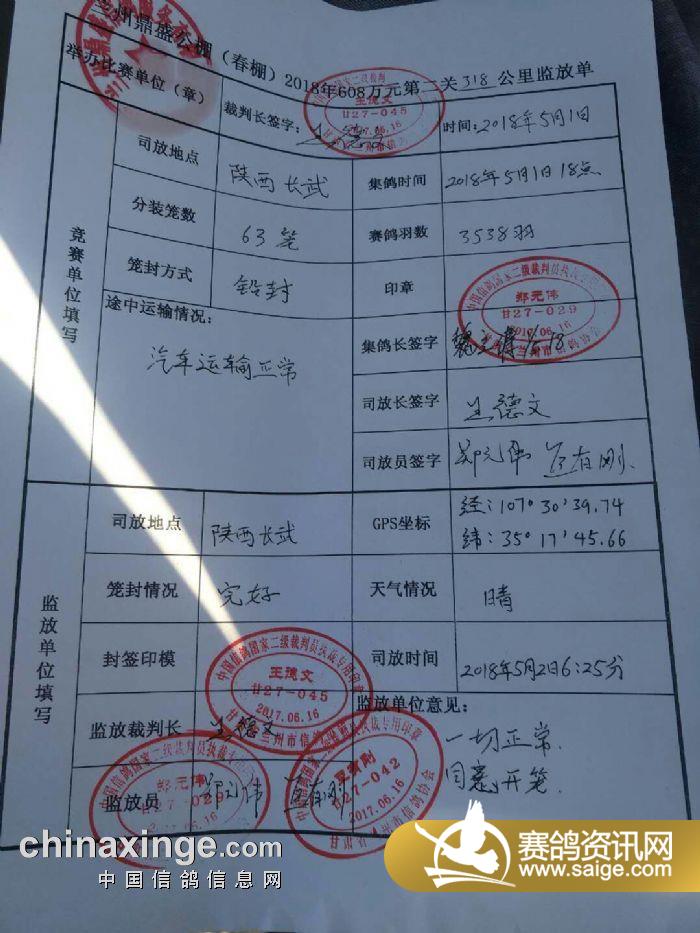 兰州鼎盛公棚（春棚）2018年608万元第二关318公里监放单
举办比赛单位（章）
裁判长签字：王德文
时间：2018年5月1日
竞赛单位填写
司放地点 陕西长武
集鸽时间 2018年5月1日18点
分装笼数 63笼
赛鸽羽数 3538羽
笼封方式 铅封
印章
途中运输情况：
汽车运输正常
集鸽长签字
司放长签字 王德文
司放员签字 郑元伟
监放单位填写
司放地点 陕西长武
GPS坐标 经：107°30'39.74
纬：35°17'45.66
笼封情况 完好
天气情况 晴
封签印模
司放时间 2018年5月2日6:25分
监放裁判长 王德文
监放单位意见：
一切正常.
同意开笼.
监放员 郑元伟
中国信鸽国家二级裁判员执裁专用印章
王德文
甘27-045
2017.06.16
甘肃兰州市信鸽协会
郑元伟
甘27-029
2017.06.16
甘27-042
2017.06.16
chinaxinge.com
中国信鸽信息网
赛鸽资讯网
www.saige.com